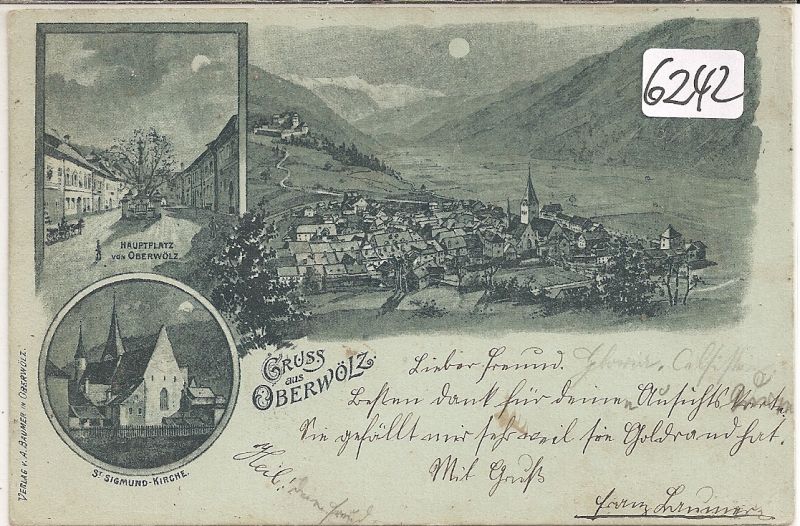 6242
HAUPTPLATZ
VON OBERWÖLZ.
ST SIGMUND-KIRCHE.
VERLAG V. A. BAUMER IN OBERWÖLZ.
GRUSS
aus
OBERWÖLZ.
Lieber Freund.
Besten Dank für deine Ansichts
Sie gefällt mir sehr weil sie Goldrand hat.
Mit Gruß
Heil!
Franz